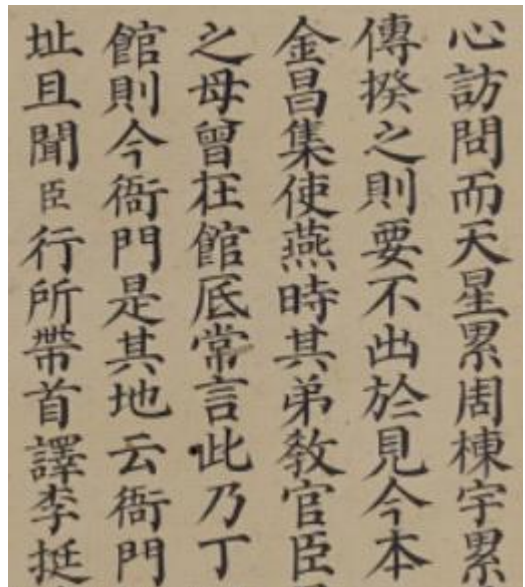 心訪問而天星累周棟宇累
傳揆之則要不出於見今本
金昌集使燕時其弟敎官臣
之母曾在館底常言此乃丁
館則今衙門是其地云衙門
址且聞臣行所帶首譯李挺